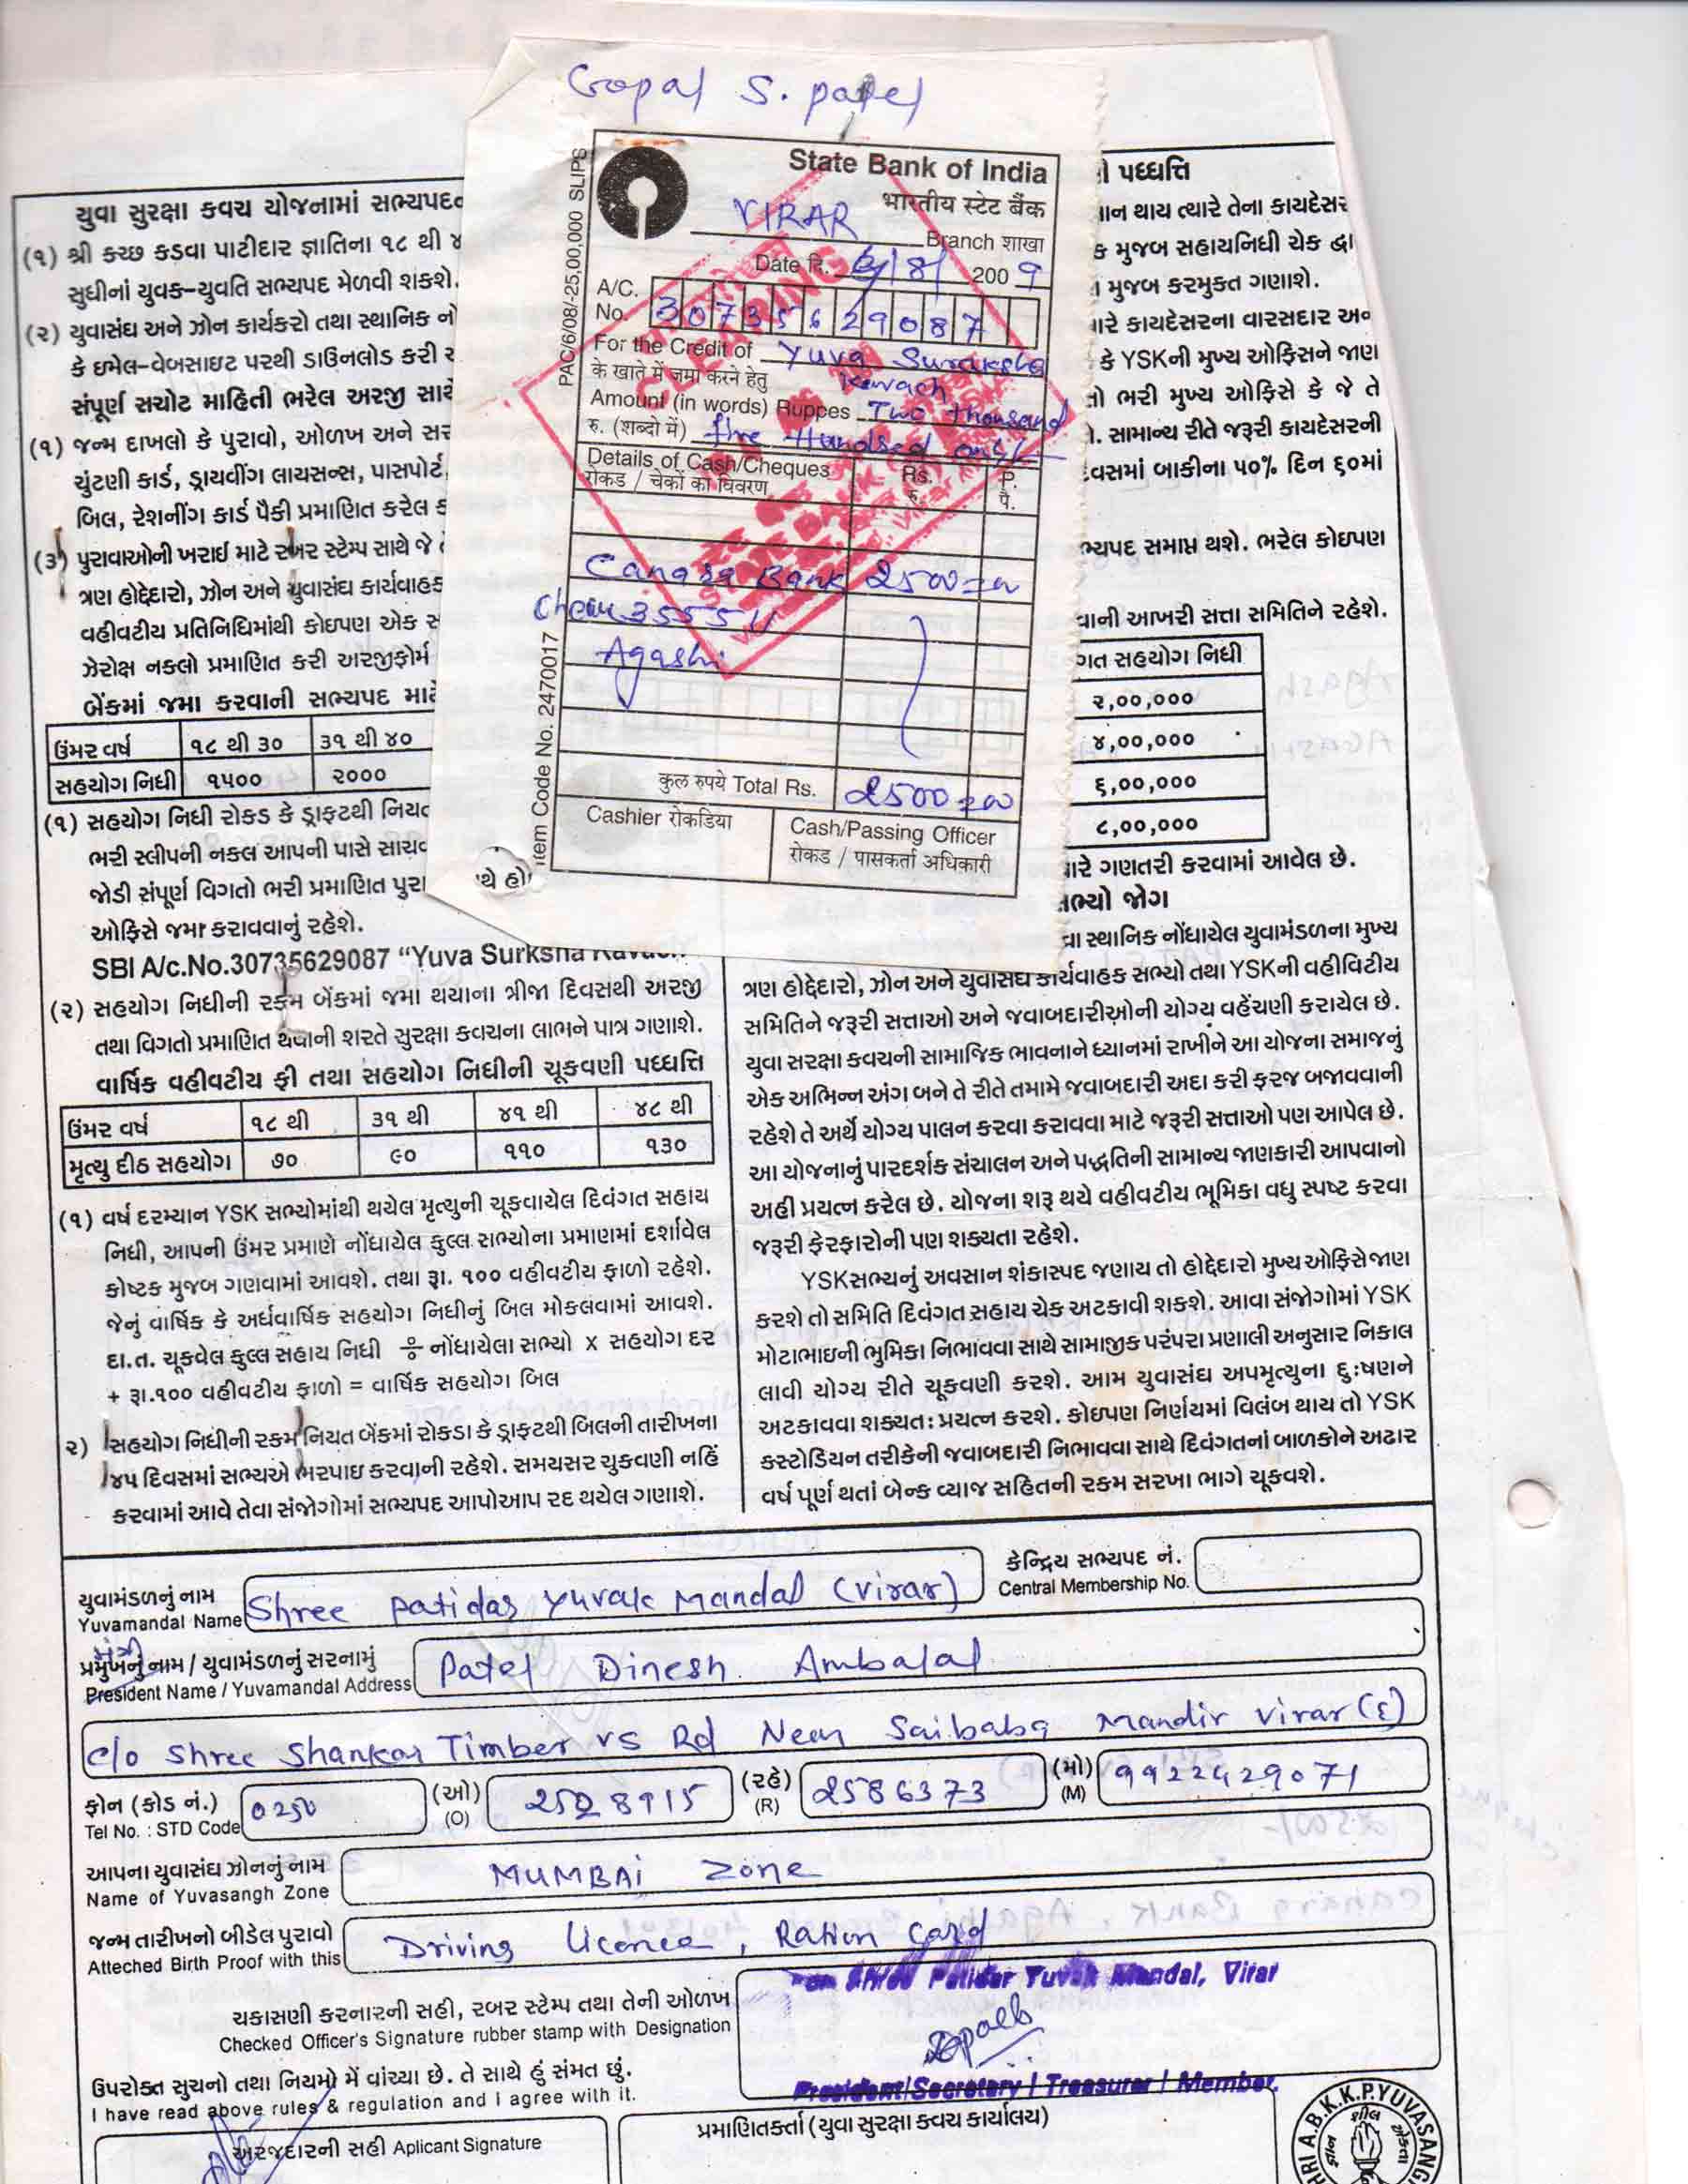 Gopal S. patel
PAC/6/08/-25,00,000 SLIPS
Item Code No. 2470017
State Bank of India
भारतीय स्टेट बैंक
VIRAR Branch शाखा
Date दि. 6/8/ 2009
A/C. No. 30735629087
For the Credit of Yuva Suraksha
के खाते में जमा करने हेतु Kavach
Amount (in words) Ruppes Two thousand
रु. (शब्दो में) five Hundred only
Details of Cash/Cheques Rs. P.
रोकड / चेकों का विवरण रु. पै.
CLEARING
Canara Bank 2500=00
355511
Agashi
कुल रुपये Total Rs. 2500=00
Cashier रोकडिया Cash/Passing Officer
रोकड / पासकर्ता अधिकारी
યુવા સુરક્ષા કવચ યોજનામાં
(૧) શ્રી કચ્છ કડવા પાટીદાર જ્ઞાતિના ૧૮ થી
સુધીનાં યુવક-યુવતિ સભ્યપદ મેળવી શકશે.
(૨) યુવાસંઘ અને ઝોન કાર્યકરો તથા સ્થાનિક
કે ઇમેલ-વેબસાઇટ પરથી ડાઉનલોડ કરી
સંપૂર્ણ સચોટ માહિતી ભરેલ અરજી
(૧) જન્મ દાખલો કે પુરાવો, ઓળખ અને
ચુંટણી કાર્ડ, ડ્રાયવીંગ લાયસન્સ, પાસપોર્ટ,
બિલ, રેશનીંગ કાર્ડ પૈકી પ્રમાણિત કરેલ
(૩) પુરાવાઓની ખરાઇ માટે રબર સ્ટેમ્પ સાથે જે
ત્રણ હોદ્દેદારો, ઝોન અને યુવાસંઘ કાર્યવાહક
વહીવટીય પ્રતિનિધિમાંથી કોઇપણ એક
ઝેરોક્ષ નકલો પ્રમાણિત કરી અરજીફોર્મ
બેંકમાં જમા કરવાની સભ્યપદ માટે
ઉંમર વર્ષ ૧૮ થી ૩૦ ૩૧ થી ૪૦
સહયોગ નિધી ૧૫૦૦ ૨૦૦૦
(૧) સહયોગ નિધી રોકડ કે ડ્રાફટથી
ભરી સ્લીપની નકલ આપની પાસે
જોડી સંપૂર્ણ વિગતો ભરી પ્રમાણિત
ઓફિસે જમા કરાવવાનું રહેશે.
SBI A/c.No.30735629087 “Yuva Surksha Kavach
(૨) સહયોગ નિધીની રકમ બેંકમાં જમા થયાના ત્રીજા દિવસથી અરજી
તથા વિગતો પ્રમાણિત થવાની શરતે સુરક્ષા કવચના લાભને પાત્ર ગણાશે.
વાર્ષિક વહીવટીય ફી તથા સહયોગ નિધીની ચૂકવણી પધ્ધતિ
ઉંમર વર્ષ ૧૮ થી ૩૧ થી ૪૧ થી ૪૮ થી
મૃત્યુ દીઠ સહયોગ ૭૦ ૯૦ ૧૧૦ ૧૩૦
(૧) વર્ષ દરમ્યાન YSK સભ્યોમાંથી થયેલ મૃત્યુની ચૂકવાયેલ દિવંગત સહાય
નિધી, આપની ઉંમર પ્રમાણે નોંધાયેલ કુલ્લ સભ્યોના પ્રમાણમાં દર્શાવેલ
કોષ્ટક મુજબ ગણવામાં આવશે. તથા રૂા. ૧૦૦ વહીવટીય ફાળો રહેશે.
જેનું વાર્ષિક કે અર્ધવાર્ષિક સહયોગ નિધીનું બિલ મોકલવામાં આવશે.
દા.ત. ચૂકવેલ કુલ્લ સહાય નિધી ÷ નોંધાયેલા સભ્યો x સહયોગ દર
+ રૂા.૧૦૦ વહીવટીય ફાળો = વાર્ષિક સહયોગ બિલ
૨) સહયોગ નિધીની રકમ નિયત બેંકમાં રોકડા કે ડ્રાફટથી બિલની તારીખના
૪૫ દિવસમાં સભ્યએ ભરપાઇ કરવાની રહેશે. સમયસર ચુકવણી નહિં
કરવામાં આવે તેવા સંજોગોમાં સભ્યપદ આપોઆપ રદ થયેલ ગણાશે.
પધ્ધતિ
થાય ત્યારે તેના કાયદેસર
મુજબ સહાયનિધી ચેક દ્વા
મુજબ કરમુક્ત ગણાશે.
કાયદેસરના વારસદાર
કે YSKની મુખ્ય ઓફિસને જાણ
ભરી મુખ્ય ઓફિસે કે જે તે
સામાન્ય રીતે જરૂરી કાયદેસરની
બાકીના ૫૦% દિન ૬૦માં
સમાપ્ત થશે. ભરેલ કોઇપણ
આખરી સત્તા સમિતિને રહેશે.
સહયોગ નિધી
૨,૦૦,૦૦૦
૪,૦૦,૦૦૦
૬,૦૦,૦૦૦
૮,૦૦,૦૦૦
ગણતરી કરવામાં આવેલ છે.
જોગ
સ્થાનિક નોંધાયેલ યુવામંડળના મુખ્ય
ત્રણ હોદ્દેદારો, ઝોન અને યુવાસંઘ કાર્યવાહક સભ્યો તથા YSKની વહીવિટીય
સમિતિને જરૂરી સત્તાઓ અને જવાબદારીઓની યોગ્ય વહેંચણી કરાયેલ છે.
યુવા સરક્ષા કવચની સામાજિક ભાવનાને ધ્યાનમાં રાખીને આ યોજના સમાજનું
એક અભિન્ન અંગ બને તે રીતે તમામે જવાબદારી અદા કરી ફરજ બજાવવાની
રહેશે તે અર્થે યોગ્ય પાલન કરવા કરાવવા માટે જરૂરી સત્તાઓ પણ આપેલ છે.
આ યોજનાનું પારદર્શક સંચાલન અને પદ્ધતિની સામાન્ય જાણકારી આપવાનો
અહી પ્રયત્ન કરેલ છે. યોજના શરૂ થયે વહીવટીય ભૂમિકા વધુ સ્પષ્ટ કરવા
જરૂરી ફેરફારોની પણ શક્યતા રહેશે.
YSKસભ્યનું અવસાન શંકાસ્પદ જણાય તો હોદ્દેદારો મુખ્ય ઓફિસે જાણ
કરશે તો સમિતિ દિવંગત સહાય ચેક અટકાવી શકશે. આવા સંજોગોમાં YSK
મોટાભાઇની ભુમિકા નિભાવવા સાથે સામાજીક પરંપરા પ્રણાલી અનુસાર નિકાલ
લાવી યોગ્ય રીતે ચૂકવણી કરશે. આમ યુવાસંઘ અપમૃત્યુના દુઃષણને
અટકાવવા શક્યતઃ પ્રયત્ન કરશે. કોઇપણ નિર્ણયમાં વિલંબ થાય તો YSK
કસ્ટોડિયન તરીકેની જવાબદારી નિભાવવા સાથે દિવંગતનાં બાળકોને અઢાર
વર્ષ પૂર્ણ થતાં બેન્ક વ્યાજ સહિતની રકમ સરખા ભાગે ચૂકવશે.
યુવામંડળનું નામ કેન્દ્રિય સભ્યપદ નં.
Yuvamandal Name Shree Patidar Yuvak Mandal (Virar) Central Membership No.
મંત્રી
પ્રમુખનું નામ / યુવામંડળનું સરનામું
President Name / Yuvamandal Address Patel Dinesh Ambalal
c/o Shree Shankar Timber VS Rd Near Saibaba Mandir Virar (E)
ફોન (કોડ નં.) (ઓ) (રહે) (મો)
Tel No. : STD Code 0250 (O) 2528915 (R) 2586373 (M) 9922429071
આપના યુવાસંઘ ઝોનનું નામ
Name of Yuvasangh Zone MUMBAI ZONE
જન્મ તારીખનો બીડેલ પુરાવો
Atteched Birth Proof with this Driving Licence, Ration Card
Shree Patidar Yuvak Mandal, Virar
ચકાસણી કરનારની સહી, રબર સ્ટેમ્પ તથા તેની ઓળખ
Checked Officer's Signature rubber stamp with Designation
President/Secretary / Treasurer / Member.
ઉપરોક્ત સુચનો તથા નિયમો મેં વાંચ્યા છે. તે સાથે હું સંમત છું.
I have read above rules & regulation and I agree with it.
અરજદારની સહી Aplicant Signature
પ્રમાણિતકર્તા (યુવા સુરક્ષા કવચ કાર્યાલય)
A.B.K.K.P.YUVASANG